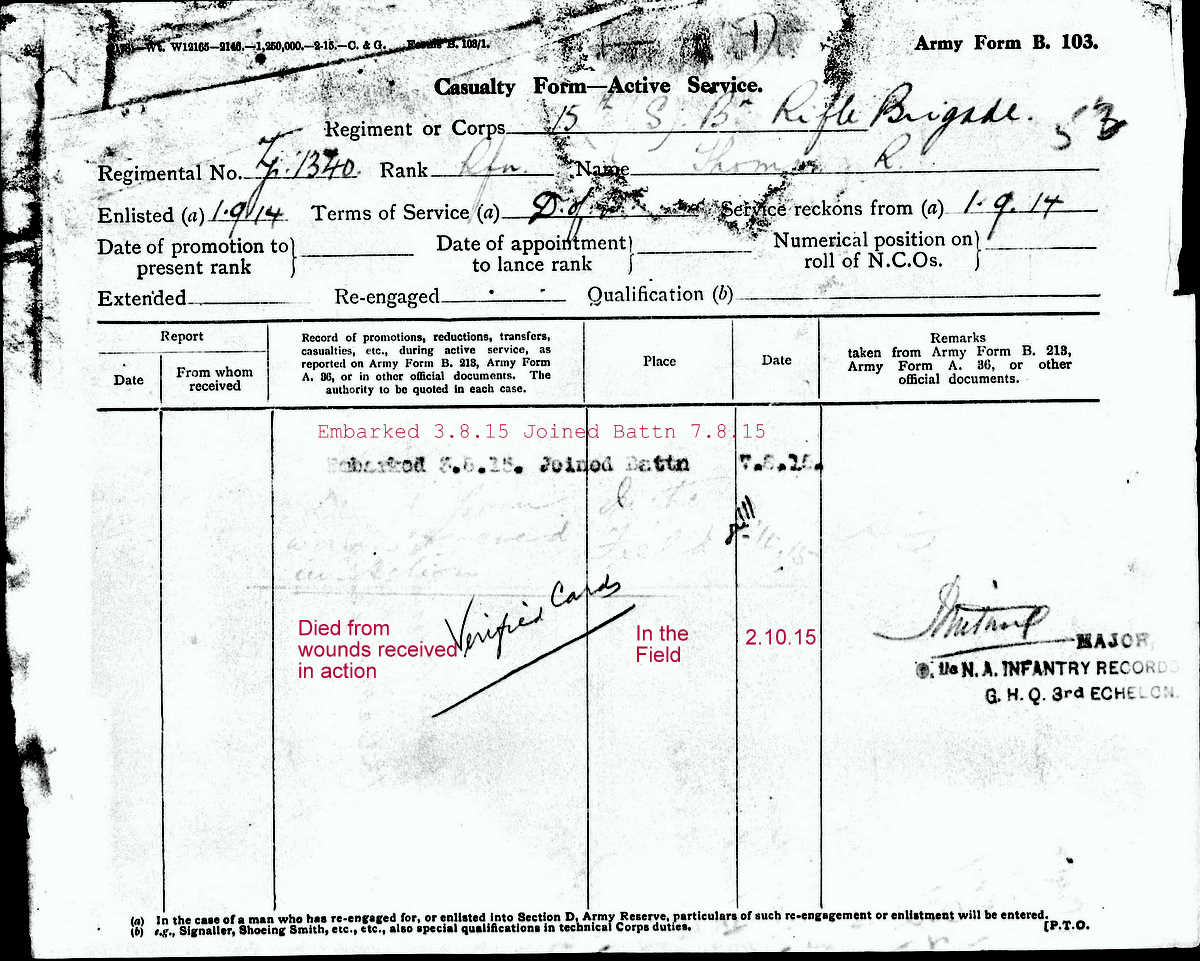 W12165—2146.—1,250,000.—2-15.—C. & G. Forms B. 103/1.
Army Form B. 103.
Casualty Form—Active Service.
Regiment or Corps 15th S. Bn Rifle Brigade. 53
Regimental No. 1340. Rank Rfn. Name Thomson R.
Enlisted (a) 1.9.14 Terms of Service (a) D. of Service reckons from (a) 1.9.14
Date of promotion to present rank } Date of appointment to lance rank } Numerical position on roll of N.C.Os. }
Extended Re-engaged Qualification (b)
Report
Date
From whom received
Record of promotions, reductions, transfers,
casualties, etc., during active service, as
reported on Army Form B. 213, Army Form
A. 36, or in other official documents. The
authority to be quoted in each case.
Place
Date
Remarks
taken from Army Form B. 213,
Army Form A. 36, or other
official documents.
Embarked 3.8.15 Joined Battn 7.8.15
Embarked 3.8.15. Joined Battn 7.8.15.
in action
Verified Cards
Died from
wounds received
in action
In the
Field
2.10.15
MAJOR,
N. A. INFANTRY RECORDS
G. H. Q. 3rd ECHELON.
(a) In the case of a man who has re-engaged for, or enlisted into Section D, Army Reserve, particulars of such re-engagement or enlistment will be entered.
(b) e.g., Signaller, Shoeing Smith, etc., etc., also special qualifications in technical Corps duties.
[P.T.O.